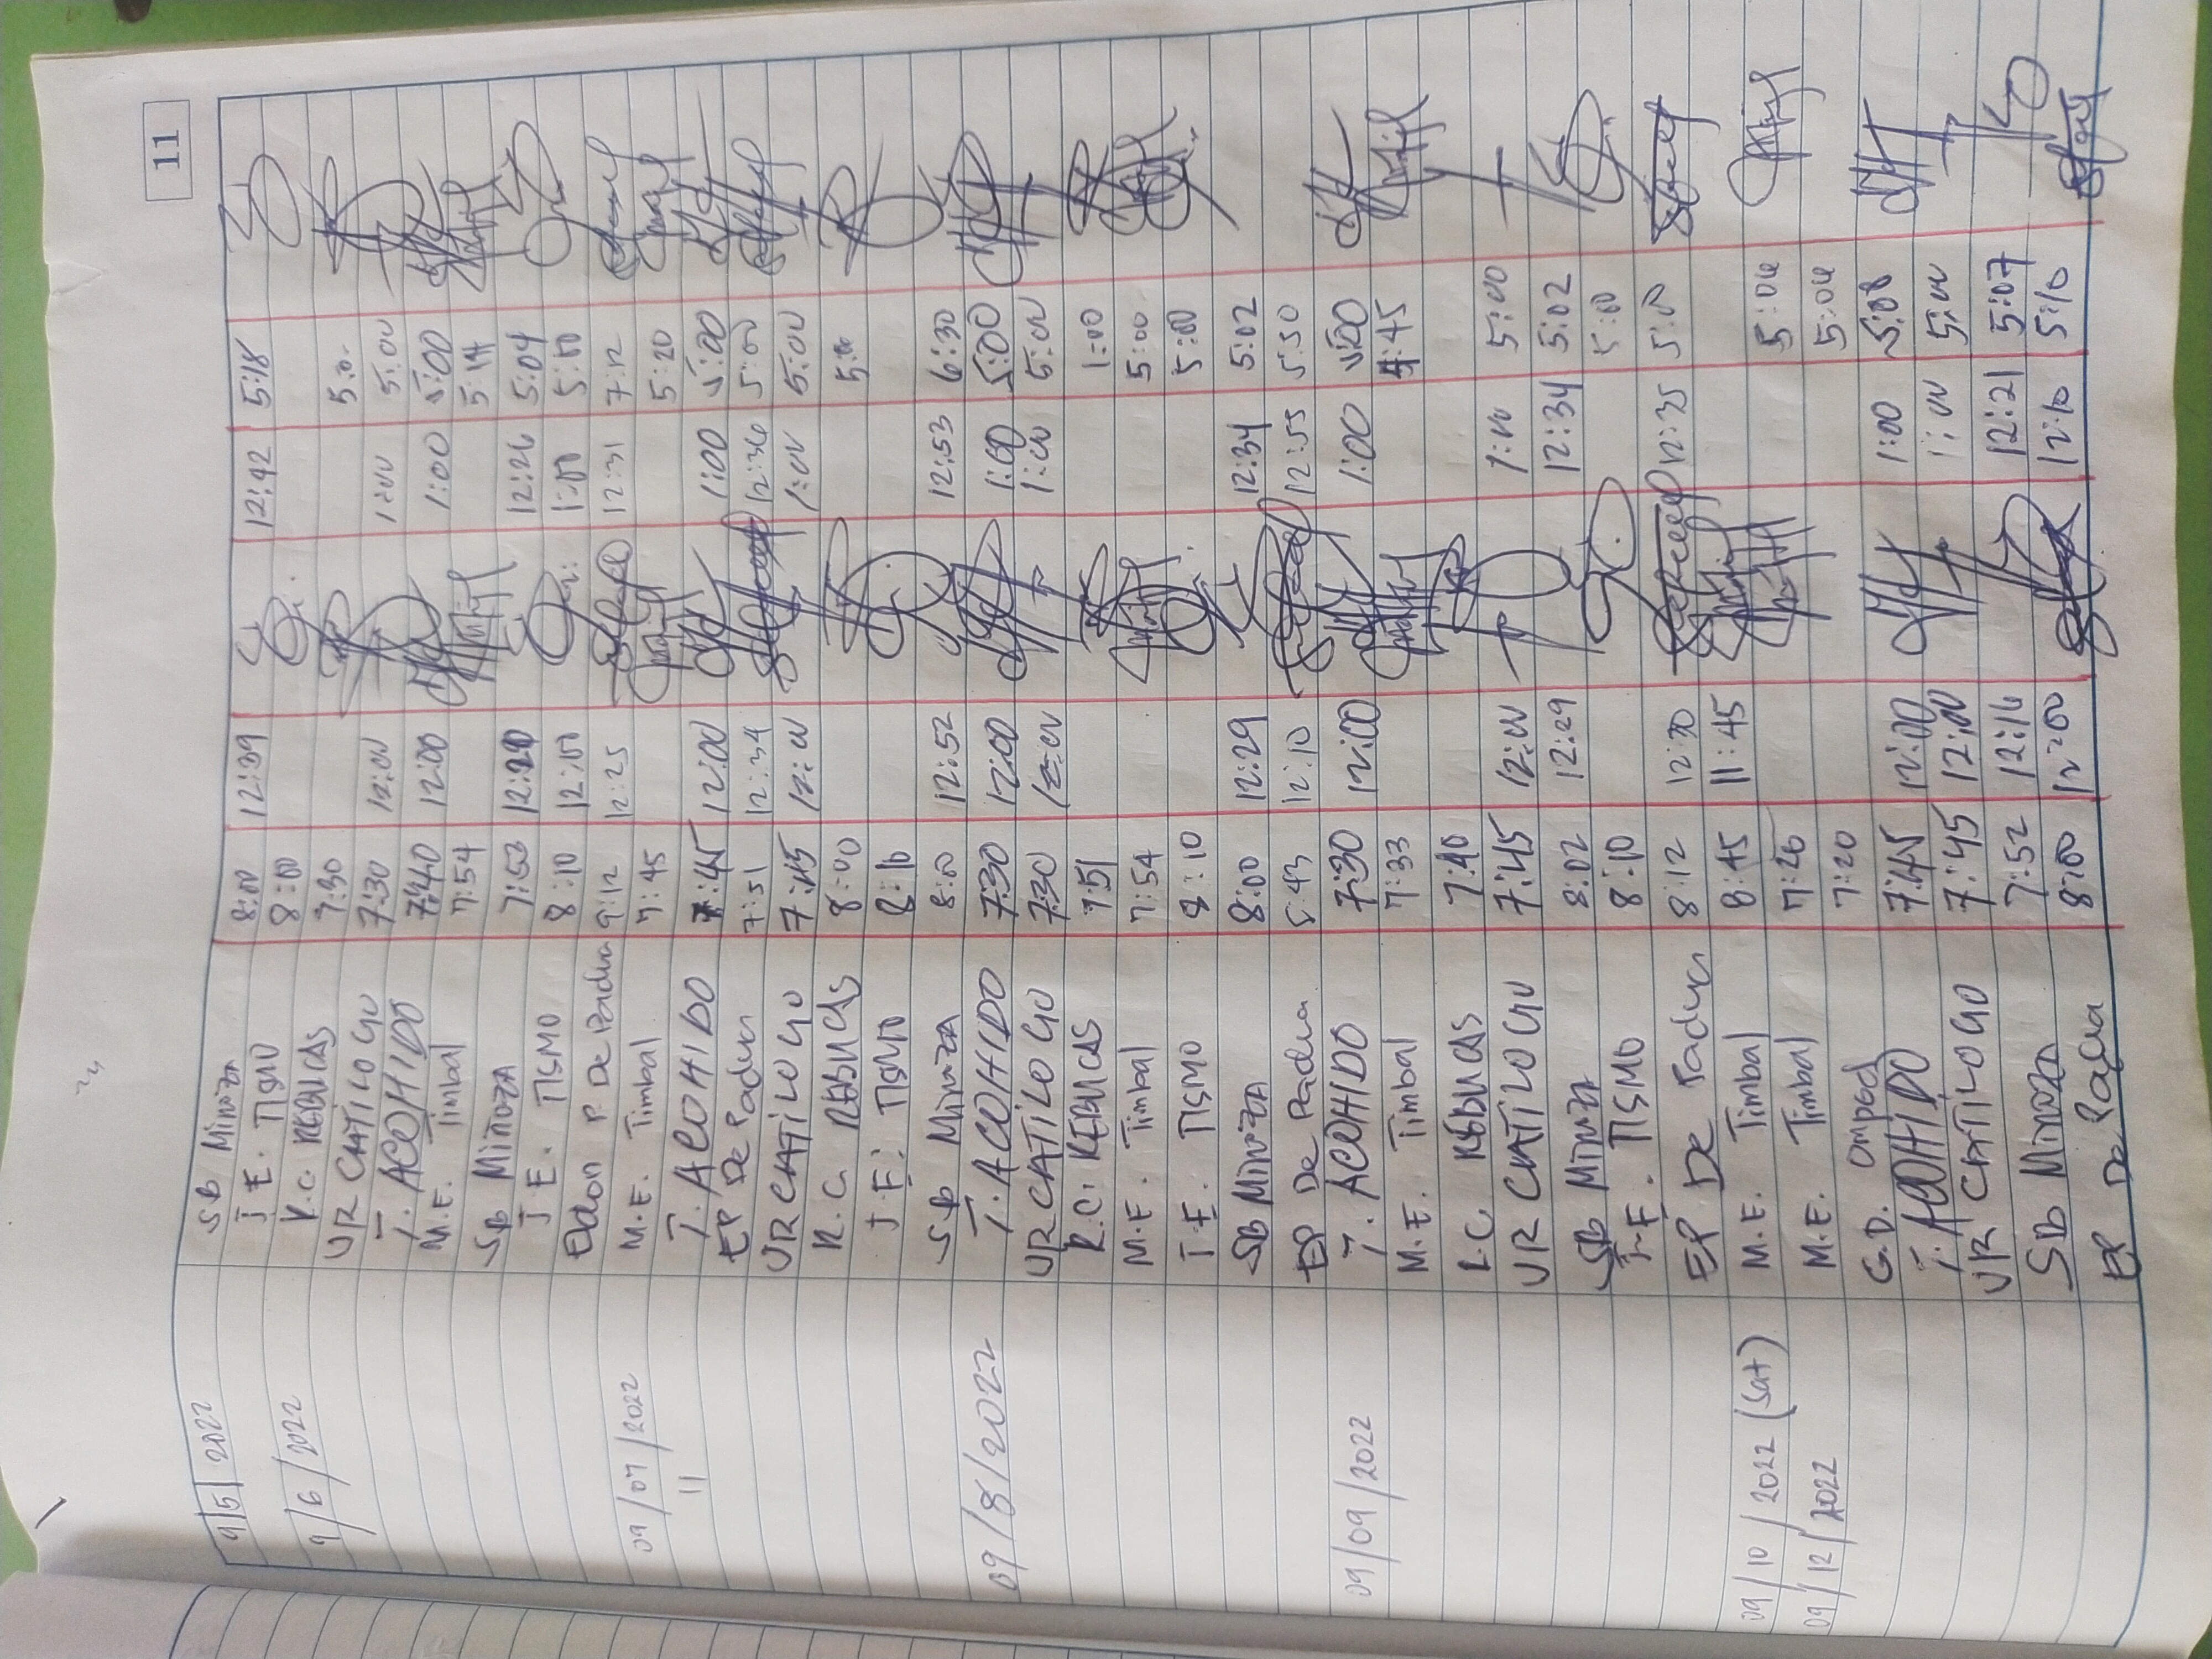 11
9/5/2022 SB Minoza 8:00 12:39 12:42 5:18
J.E. TISMO 8:00
9/6/2022 R.C. REBUCAS 7:30 5:00
UR CATILOGO 7:30 12:00 1:00 5:00
T. ACOHIDO 7:40 12:00 1:00 5:00
M.E. Timbal 7:54 5:14
SB Minoza 7:53 12:20 12:26 5:04
J.E. TISMO 8:10 12:00 1:00 5:00
Edon P. De Padua 9:12 12:25 12:31 7:12
09/07/2022 M.E. Timbal 7:45 5:20
11 T. ACOHIDO 7:45 12:00 1:00 5:00
EP De Padua 7:51 12:34 12:36 5:00
UR CATILOGO 7:45 12:00 1:00 5:00
R.C. REBUCAS 8:00 5:00
J.E. TISMO 8:10
SB Minoza 8:00 12:52 12:53 6:30
09/8/2022 T. ACOHIDO 7:30 12:00 1:00 5:00
UR CATILOGO 7:30 12:00 1:00 5:00
R.C. REBUCAS 7:51 1:00
M.E. Timbal 7:54 5:00
J.E. TISMO 8:10 5:00
SB Minoza 8:00 12:29 12:34 5:02
EP De Padua 12:10 12:55 5:30
09/09/2022 T. ACOHIDO 7:30 12:00 1:00 5:00
M.E. Timbal 7:33 4:45
R.C. REBUCAS 7:40
UR CATILOGO 7:45 12:00 1:00 5:00
SB Minoza 8:02 12:29 12:34 5:02
J.E. TISMO 8:10 5:00
EP. De Padua 8:12 12:30 12:35 5:00
09/10/2022 (Sat) M.E. Timbal 8:45 11:45
09/12/2022 M.E. Timbal 7:26 5:06
G.D. Omped 7:20 5:06
T. ACOHIDO 7:45 12:00 1:00 5:08
UR CATILOGO 7:45 12:00 1:00 5:00
SB Minoza 7:52 12:16 12:21 5:07
EP De Padua 8:00 12:00 12:10 5:10